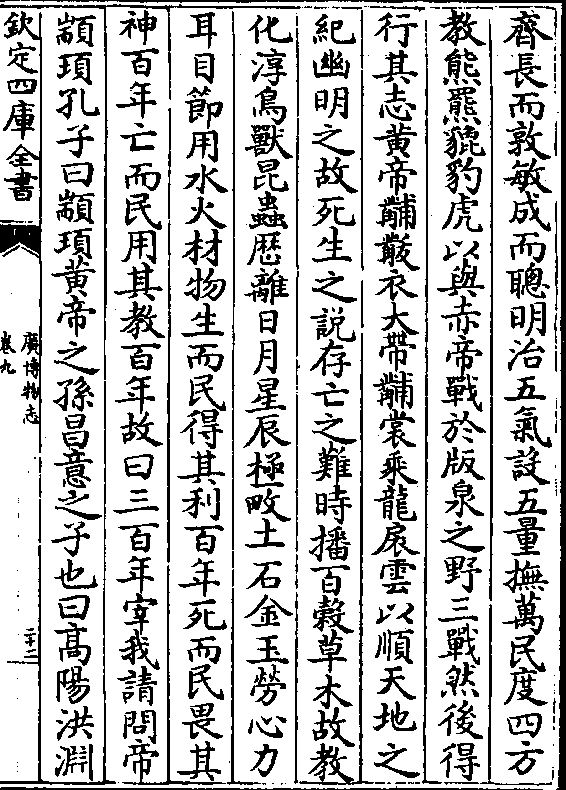 齊長而敦敏成而聰明治五氣設五量撫萬民度四方
教熊羆貔豹虎以與赤帝戰於版泉之野三戰然後得
行其志黄帝黼黻衣大帶黼裳乘龍扆雲以順天地之
紀幽明之故死生之説存亡之難時播百榖草木故教
化淳鳥獸昆蟲歴離日月星辰極畋土石金玉勞心力
耳目節用水火材物生而民得其利百年死而民畏其
神百年亡而民用其教百年故曰三百年宰我請問帝
顓頊孔子曰顓頊黄帝之孫昌意之子也曰髙陽洪淵
欽定四庫全書
廣博物志
卷九
二十二